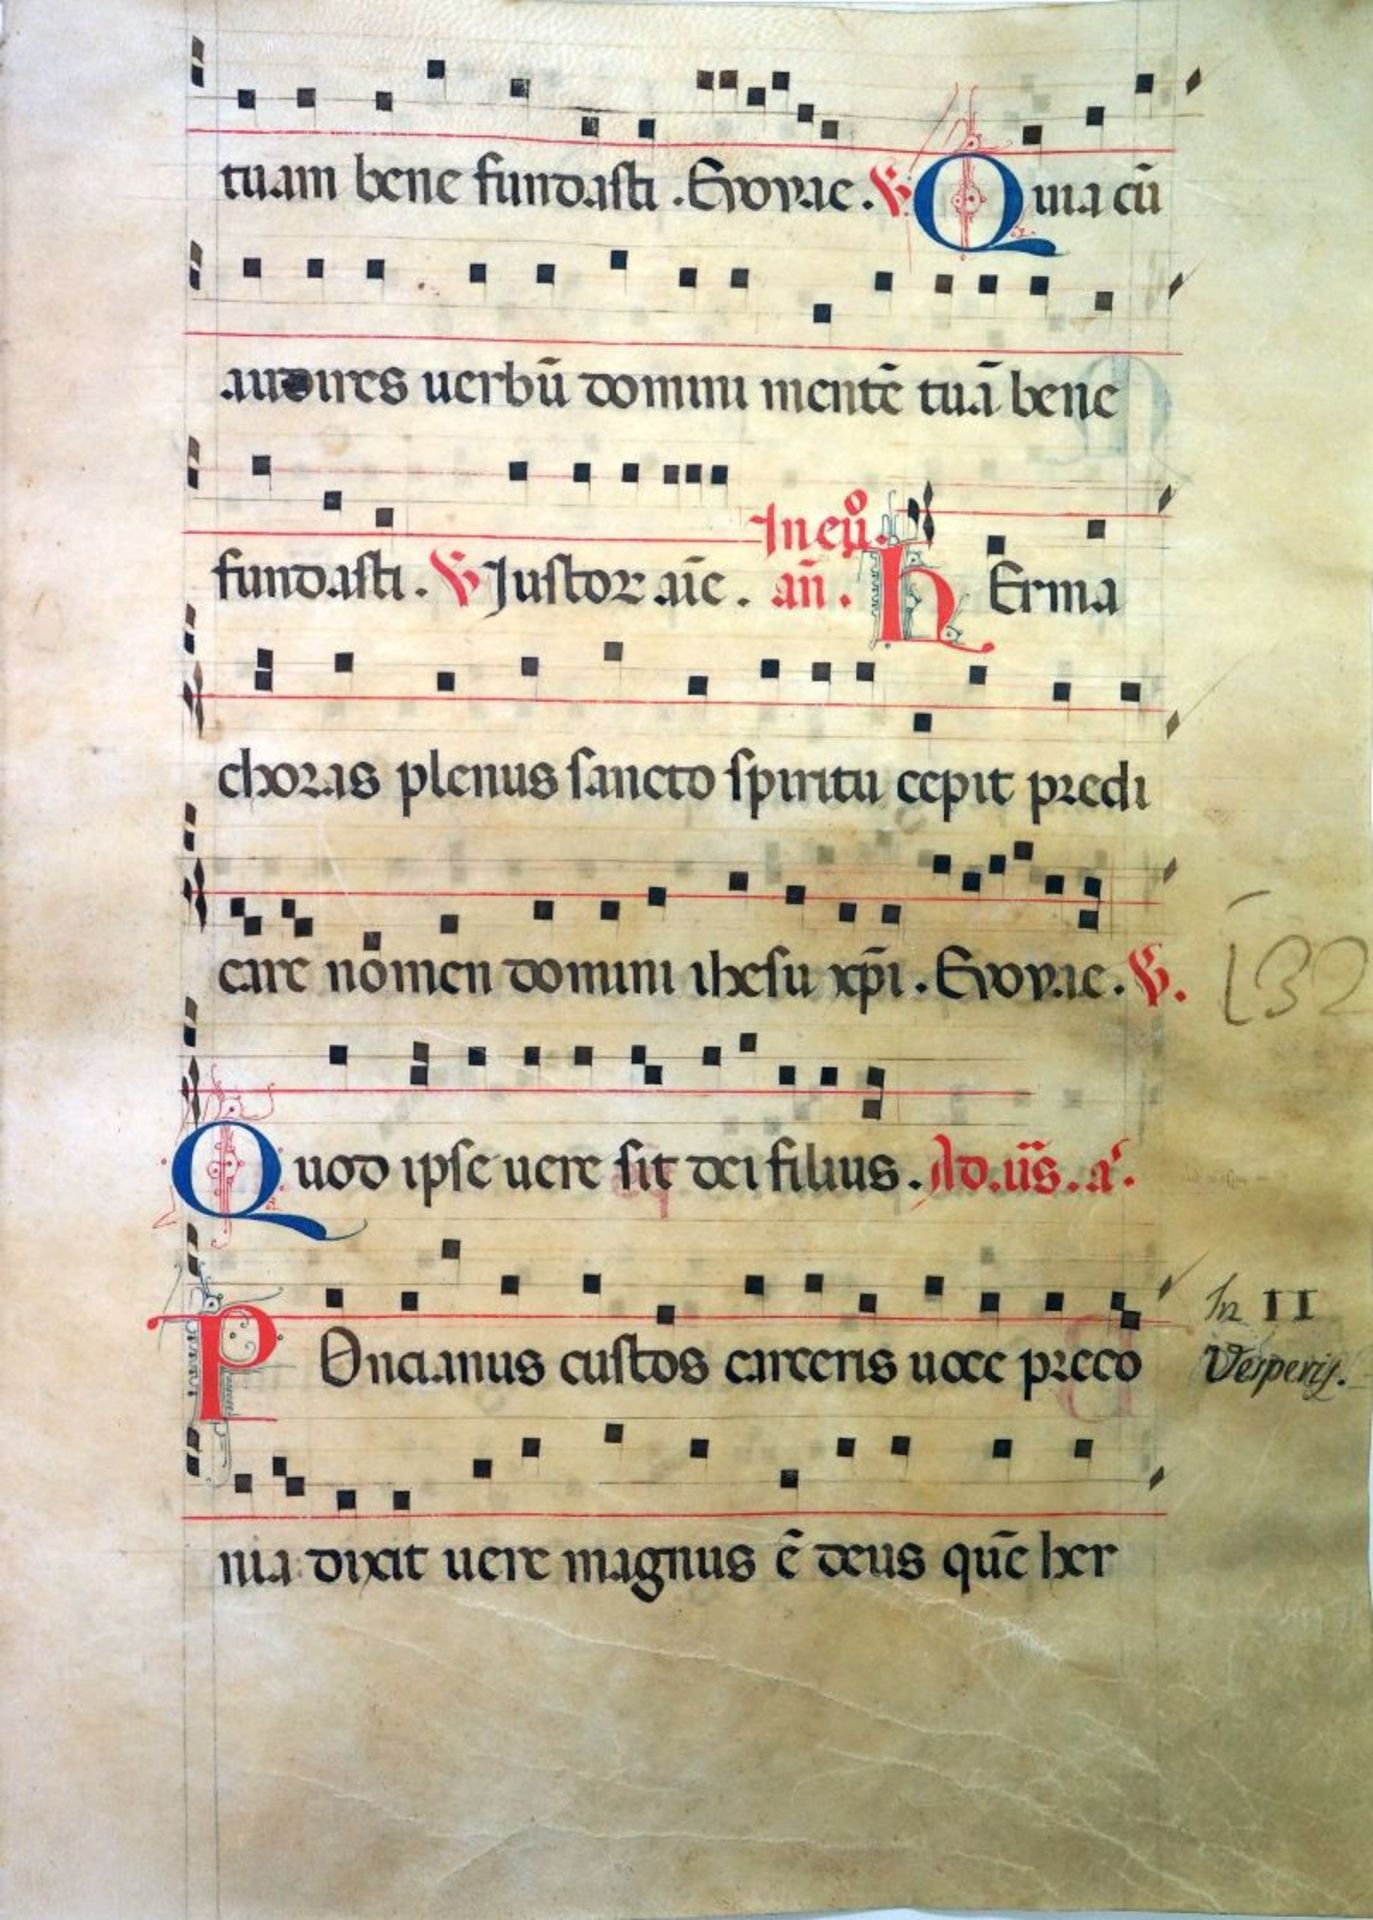 tuam bene fundasti . Evovae . ℣ Quia cū
audires uerbū domini mentē tuā bene
fundasti . ℣ Justoꝝ aīe . In euo. an̄ . hErma
choras plenus sancto spiritu cepit predi
care nomen domini ihesu xp̄i . Evovae . ℣.
[32
Quod ipse uere sit dei filius . Ad . ūs . a .
POncianus custos carceris uoce preco
In II
Vesperis.
nia dixit uere magnus ē deus quē her